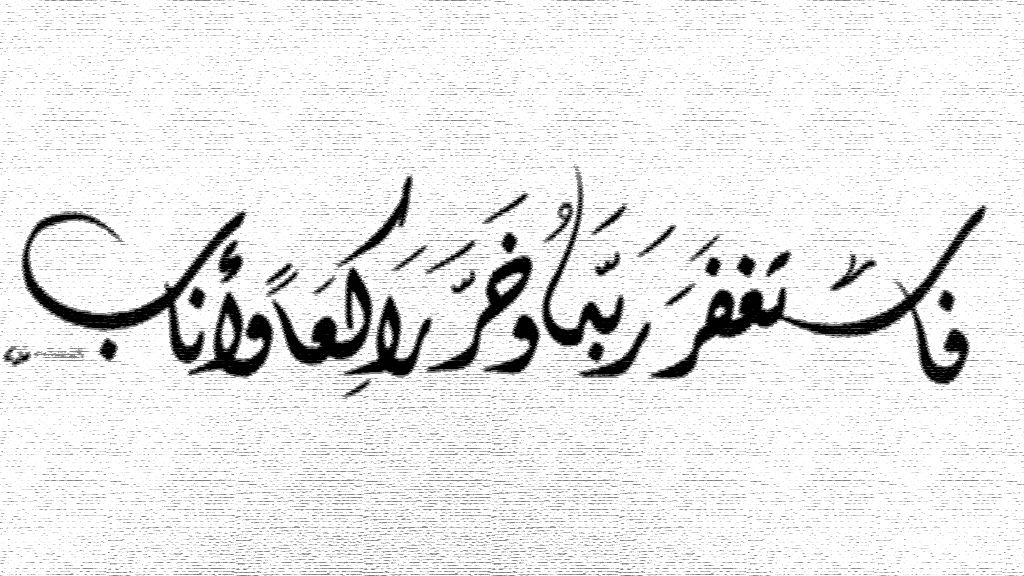 فَاسْتَغْفَرَ رَبَّهُ وَخَرَّ رَاكِعًا وَأَنَابَ